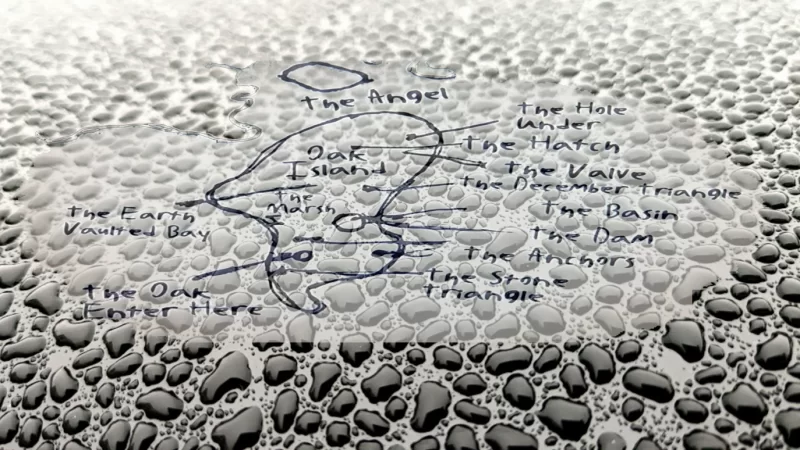 the Angel
the Hole
under
the Hatch
Oak
Island
the Valve
the December triangle
the
Marsh
the Basin
the Earth
Vaulted Bay
the Dam
the Anchors
the Stone
triangle
the Oak
Enter Here